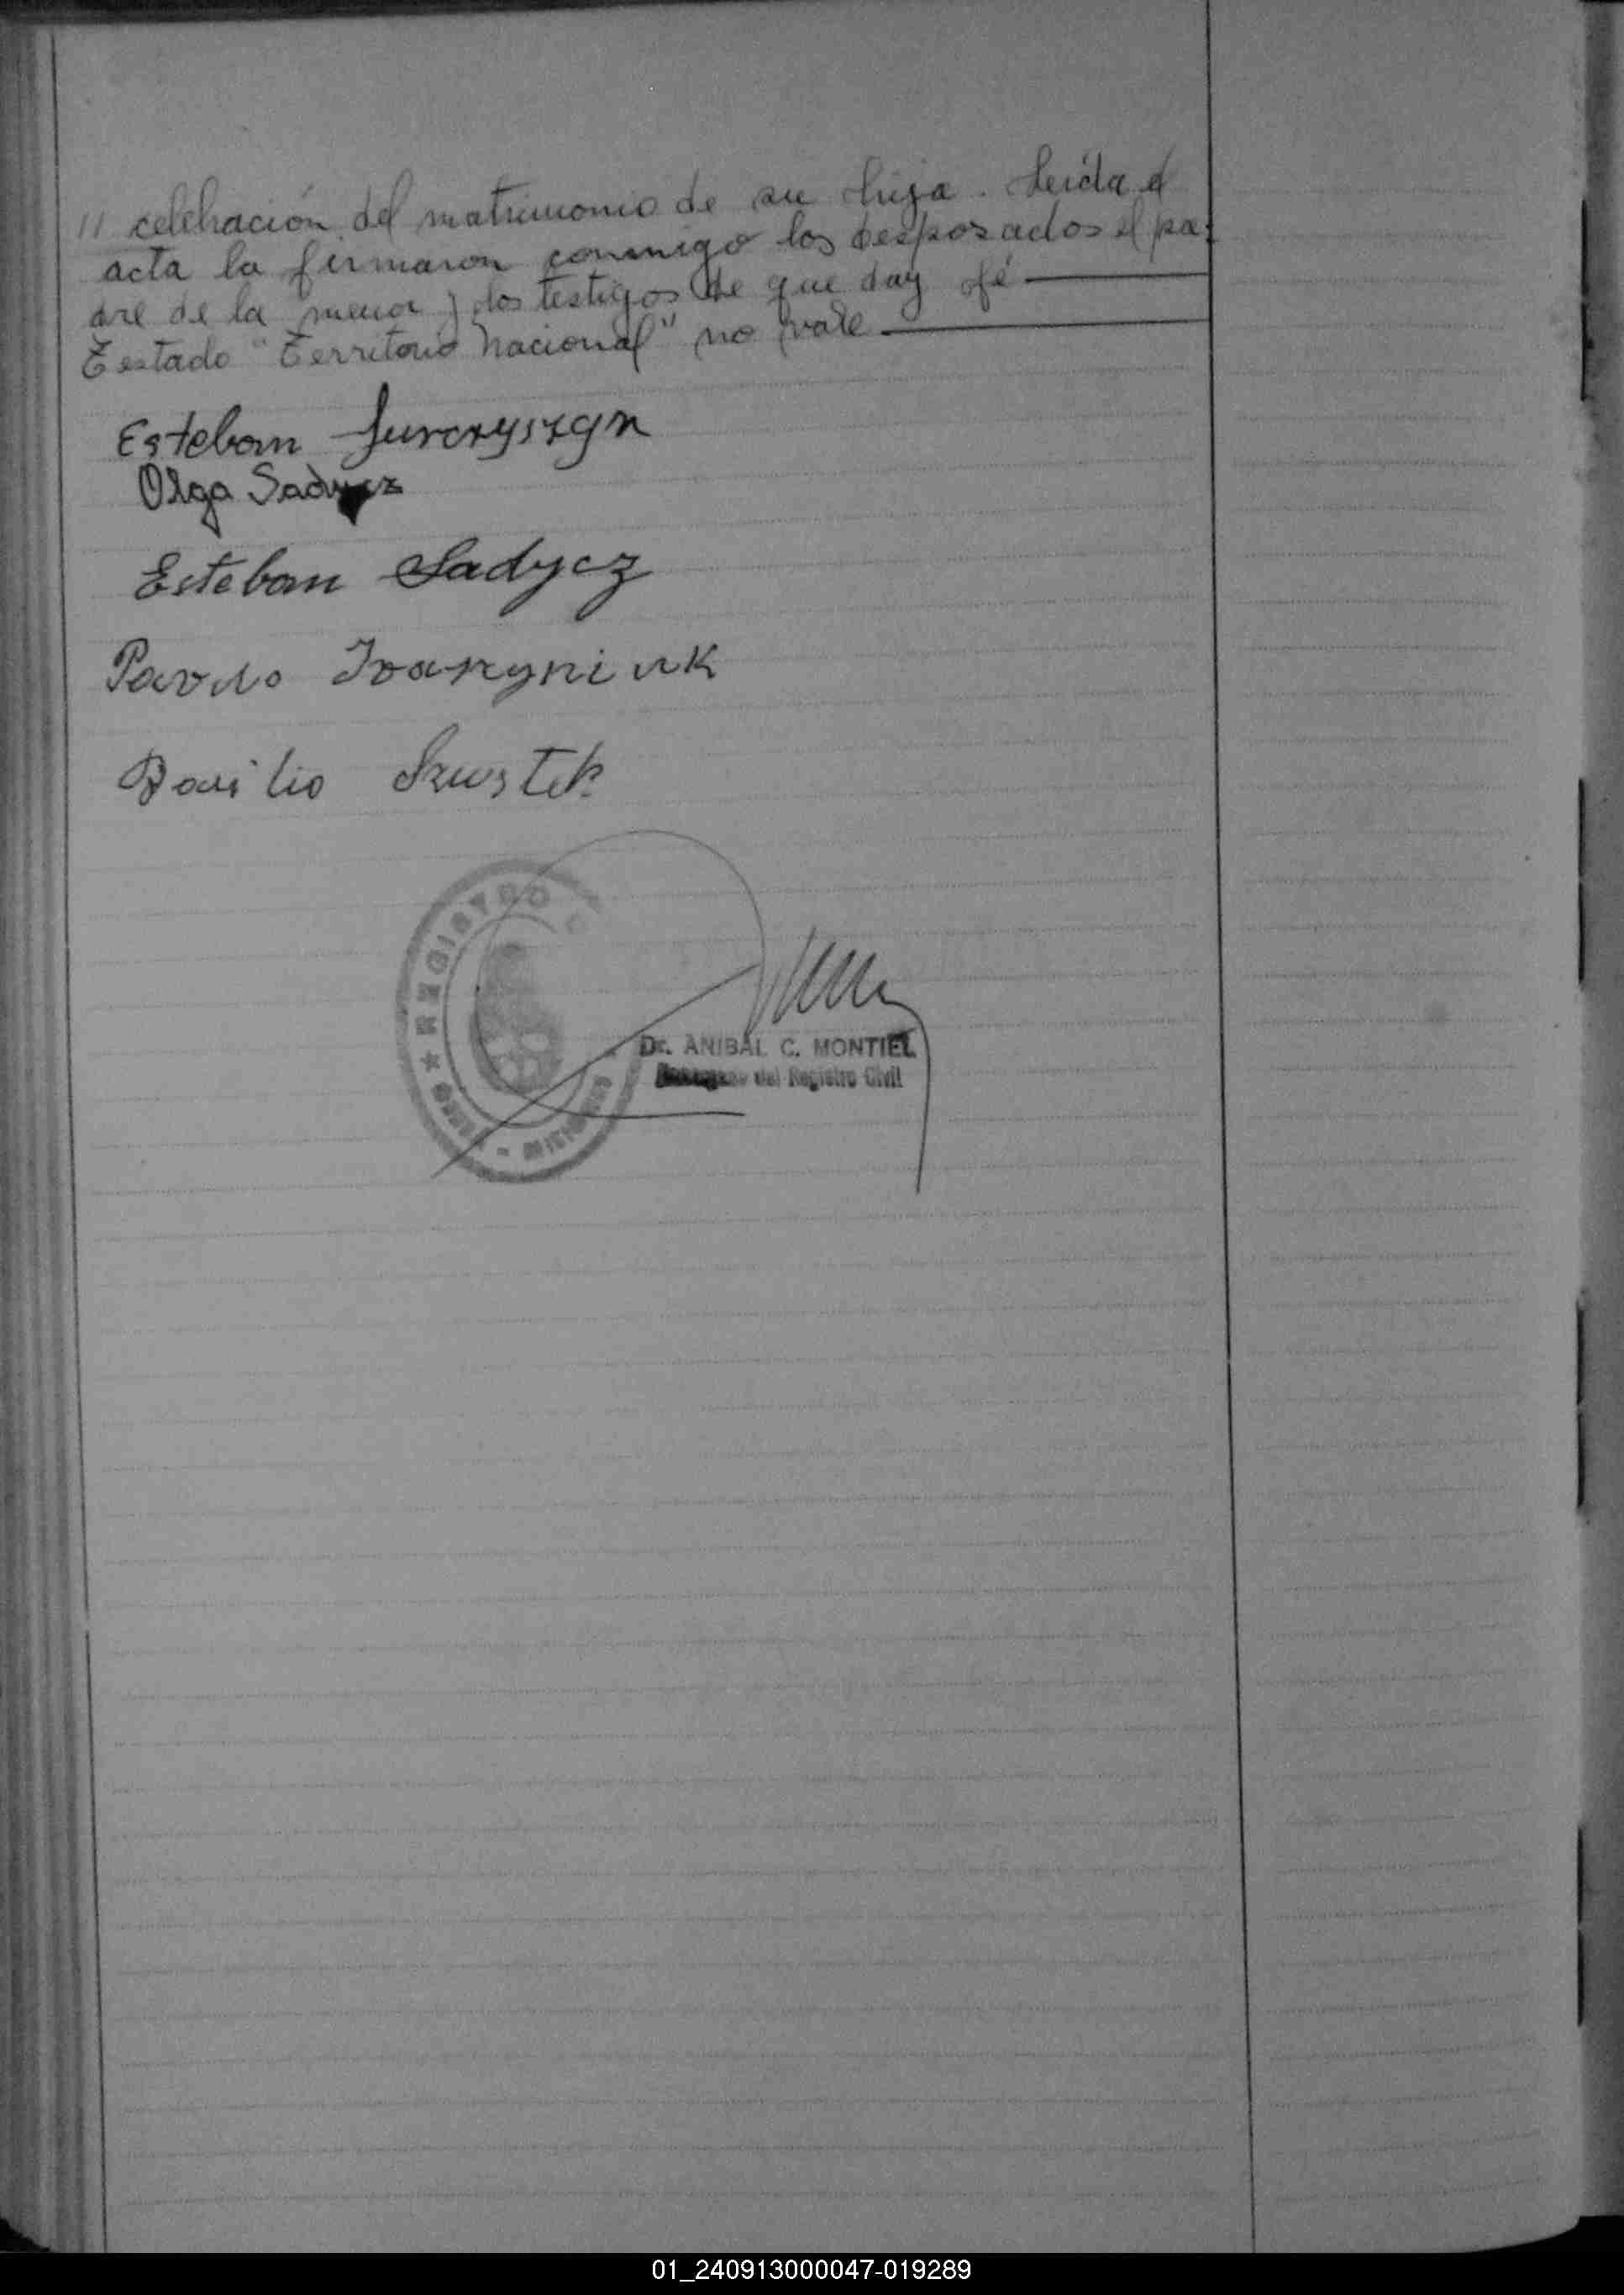 " celebración del matrimonio de su hija. Leída el
acta la firmaron conmigo los desposados el pa-
dre de la menor y los testigos de que doy fé
Testado "Territorio Nacional" no vale
Esteban Jurczyszyn
Olga Sadycz
Esteban Sadycz
Pavlo Iwanyniuk
Basilio
REGISTRO
MISIONES
Dr. ANIBAL C. MONTIEL
del Registro Civil
01_240913000047-019289